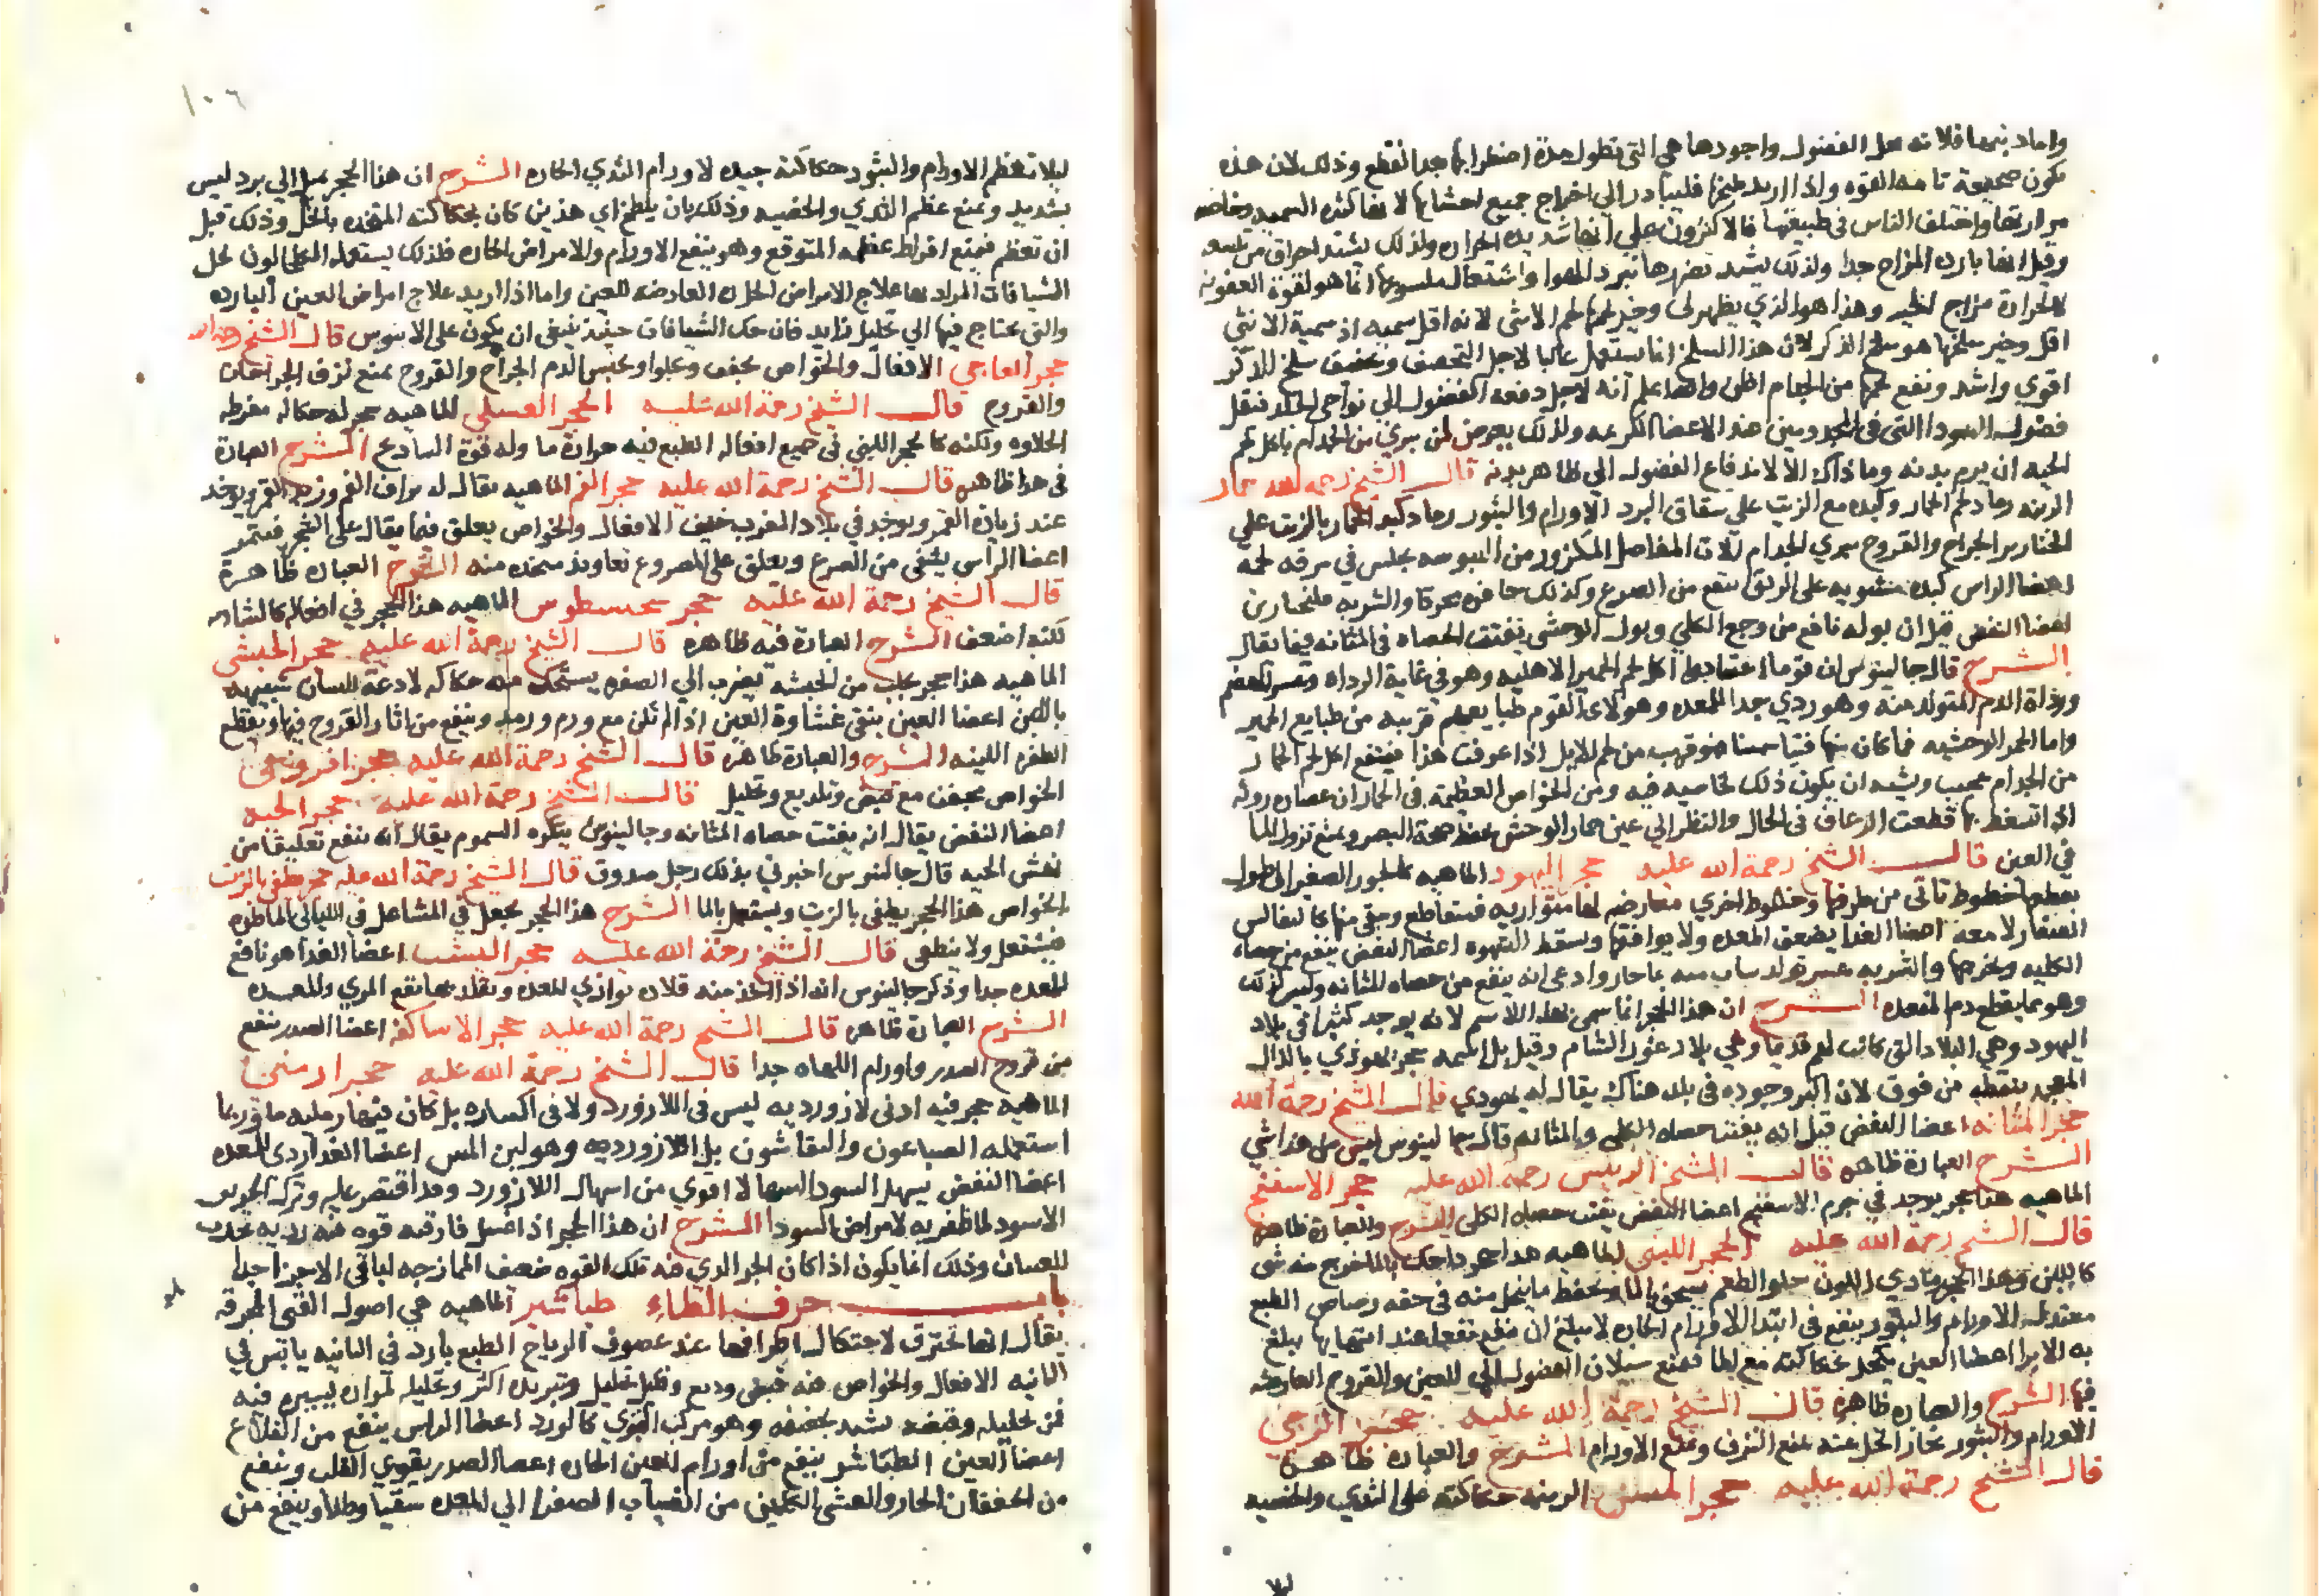 واما دبغها فلانه محل الفضول واجودها هي التي تطول مدة اضطرابها بعد القطع وذلك لان هذه
تكون صحيحة تامه القوه واذا اريد طبخها فليبادر الي اخراج جميع احشايها لانها كثيره السميه وخاصه
مرارتها واختلف الناس في طبيعتها فالاكثرون علي انها شديده الحراره ولذلك يشتد احراق من تلسعه
وقيل انها بارده المزاج جدا ولذلك يشتد تضررها ببرد الهوا واشتعال ملسوعها انما هو لقوة العفونه
لا لحرارة مزاج وهذا هو الذي يظهر لي وخير لحمها لحم الانثي لانه اقل سميه اذ سمية الانثي
اقل وخير سلخها هو سلخ الذكر لان هذا السلخ انما يستعمل غالبا لاجل التجفيف وتجفيف سلخ الذكر
اقوي واشد ونفع لحمها من الجذام اظن والله اعلم انه لاجل دفعه الفضول الي نواحي الجلد فتقل
فضول السودا التي في المجذومين عند الاعضا الكريمه ولذلك يعرض لمن يبري من الجذام باكل لحم
الحيه ان يرم بدنه وما ذاك الا لاندفاع الفضول الي ظاهر بدنه قال الشيخ رحمه الله حمار
الزينه رماد لحم الحمار وكبده مع الزيت علي شقاق البرد الاورام والبثور رماد كبد الحمار بالزيت علي
الخنازير الجراح والقروح يبري الجذام الات المفاصل المكزوز من اليبوسه يجلس في مرقه لحمه
اعضا الراس كبده مشويه علي الريق ينفع من الصرع وكذلك حافره محرقا والشربه فلنجارين
اعضا النفض قيل ان بوله نافع من وجع الكلي وبول الوحشي يفتت الحصاه في المثانه فيما يقال
الشرح قال جالينوس ان قوما اعتادوا اكل لحم الحمير الاهليه وهو في غاية الرداه وعسر الهضم
ورداة الدم المتولد منه وهو ردي جدا للمعده وهولاي القوم طبايعهم قريبه من طبايع الحمير
واما الحمر الوحشيه فما كان منها فتيا سمينا فهو قريب من لحم الابل اذا عرفت هذا فنفع اكل لحم الحمار
من الجذام عجيب ويشبه ان يكون ذلك لخاصيه فيه ومن الخواص العظيمة في الحمار ان عصاره روثه
اذا استعط بها قطعت الرعاف في الحال والنظر الي عين حمار الوحش يحفظ صحة البصر ويمنع نزول الما
في العين قال الشيخ رحمة الله عليه حجر اليهود الماهيه كالجوز الصغير الي طول
يقطعها خطوط تاتي من طرفها وخطوط اخري معارضه لها متوازيه فتتقاطع
اعضا الغذا يضعف المعده ولا يوافقها ويسقط الشهوه اعضا النفض ينفع من حصاه
الكليه ويخرجها والشربه عسر تولد ساب منه بما حار وادعي انه ينفع من حصاه المثانه وليس كذلك
وهو مما يقطع دم المقعده الشرح ان هذا الحجر انما سمي بهذا الاسم لانه يوجد كثيرا في بلاد
اليهود وهي البلاد التي كانت لهم قديما وهي بلاد غور الشام وقيل بل اسمه حجر يهوذي بالذال
المعجمه بنقطه من فوق لان اكثر وجوده في بلد هناك يقال له يهوذي قال الشيخ رحمة الله
حجر المثانه اعضا النفض قيل انه يفتت حصاه الكلي والمثانه قال جالينوس ليس من هذا شي
الشرح العبارة ظاهره قال الشيخ الرييس رحمة الله عليه حجر الاسفنج
الماهيه هذا حجر يوجد في جرم الاسفنج اعضا النفض يفتت حصاه الكلي الشرح والعبارة ظاهره
قال الشيخ رحمة الله عليه الحجر اللبني الماهيه هذا حجر اذا حك بالما خرج منه شي
كاللبن وهذا الحجر رمادي اللون حلو الطعم يسحق بالما ويحفظ ما ينحل منه في حقه رصاص الطبع
معتدل الاورام والبثور ينفع في ابتدا الاورام الحاره لا يبلغ ان يظهر نفعا عند انتهايها يبلغ
به الابرا اعضا العين يكتحل بحكاكته مع الما فيمنع سيلان الفضول الي العين والقروح العارضه
فيها الشرح والعباره ظاهرة قال الشيخ رحمة الله عليه حجر الرحي
الاورام والبثور بخار الخل عنه يمنع النزف ويمنع الاورام الشرح والعبارة ظاهرة
قال الشيخ رحمة الله عليه حجر المسن الزينه حكاكته علي الثدي والخصيه
ليلا
١٠٦
ليلا تعظم الاورام والبثور حكاكته جيده لاورام الثدي الحاره الشرح ان هذا الحجر يميل الي برد ليس
بشديد ويمنع عظم الثدي والخصيه وذلك بان يلطخ اي هذين كان بحكاكته المتخذه بالخل وذلك قبل
ان تعظم فيمنع افراط عظمه المتوقع وهو ينفع الاورام والامراض الحاره فلذلك يستعمله الكحالون لحل
الشيافات المراد بها علاج الامراض الحاره العارضه للعين واما اذا اريد علاج امراض العين البارده
والتي يحتاج فيها الي تحليل زايد فان حك الشيافات حينئذ ينبغي ان يكون علي الابنوس قال الشيخ رحمه الله
حجر العاجي الافعال والخواص يجفف ويجلوا ويحبس الدم الجراح والقروح يمنع نزف الجراحات
والقروح قال الشيخ رحمة الله عليه الحجر العسلي الماهيه حجر له حكاكه مفرطه
الحلاوه ولكنه كالحجر اللبني في جميع افعاله الطبع فيه حرارة ما وله قوة الشادنج الشرح العبارة
في هذا ظاهره قال الشيخ رحمة الله عليه حجر القمر الماهيه يقال له بزاق القمر وزبد القمر يوجد
عند زيادة القمر ويوجد في بلاد المغرب خفيف الافعال والخواص يعلق فيما يقال علي الشجر فتثمر
اعضا الراس يشفي من الصرع ويعلق علي المصروع تعاويذ متخذه منه الشرح العباره ظاهرة
قال الشيخ رحمة الله عليه حجر الماهيه هذا الحجر في افعاله كالشادنه
لكنه اضعف الشرح العبارة فيه ظاهره قال الشيخ رحمة الله عليه حجر الحبشي
الماهيه هذا حجر يجلب من الحبشه يضرب الي الصفره يستحك منه حكاكه لاذعة للسان شبيهه
باللبن اعضا العين ينقي غشاوة العين اذا لم تكن مع ورم ورمد وينفع من اثار القروح فيها ويقطع
الظفره اللينه الشرح والعبارة ظاهرة قال الشيخ رحمة الله عليه حجر افروجي
الخواص مجفف مع قبض وتلذيع وتحليل قال الشيخ رحمة الله عليه حجر الحيه
اعضا النفض يقال انه يفتت حصاه المثانه وجالينوس ينكره السموم يقال انه ينفع تعليقا من
نهش الحيه قال جالينوس اخبرني بذلك رجل صدوق قال الشيخ رحمة الله عليه حجر يطفي بالزيت
الخواص هذا الحجر يطفي بالزيت ويشتعل بالما الشرح هذا الحجر يجعل في المشاعل في الليالي الماطره
فيشتعل ولا ينطفي قال الشيخ رحمة الله عليه حجر اليشب اعضا الغذا هو نافع
للمعده جدا وذكر جالينوس انه اذا اتخذ منه قلاده توازي المعده وتقلد بها نفع المري والمعده
الشرح العبارة ظاهره قال الشيخ رحمة الله عليه حجر الاساكفه اعضا الصدر ينفع
من قروح الصدر واورام اللهاه جدا قال الشيخ رحمة الله عليه حجر ارمني
الماهيه حجر فيه ادني لازورديه ليس في اللازورد ولا في اكتنازه بل كان فيه ارمليه ما وربما
استعمله الصباغون والنقاشون بدل اللازورديه وهو لين المس اعضا الغذا ردي للمعده
اعضا النفض يسهل السودا اسهالا اقوي من اسهال اللازورد وقد اقتصر عليه وترك الخربق
الاسود لما ظفر به لامراض السودا الشرح ان هذا الحجر اذا غسل فارقته قوه منه رديه تحدث
للغثيان وذلك انما يكون اذا كان الجز الذي منه تلك القوه ضعيف الممازجه لباقي الاجزا جدا
باب حرف الطاء طباشير الماهيه هي اصول القني المحرقه
يقال انها تحترق لاحتكاك اطرافها عند عصوف الرياح الطبع بارد في الثانيه يابس في
الثالثه الافعال والخواص فيه قبض ودبغ وقليل تحليل وتبريده اكثر وتحليله لمراره يسيره فيه
فمن تحليله وقبضه يشتد تجفيفه وهو مركب القوي كالورد اعضا الراس ينفع من القلاع
اعضا العين الطباشير ينفع من اورام العين الحاره اعضا الصدر يقوي القلب وينفع
من الخفقان الحار والغشي الكاين من انصباب الصفرا الي المعده سقيا وطلا وينفع من